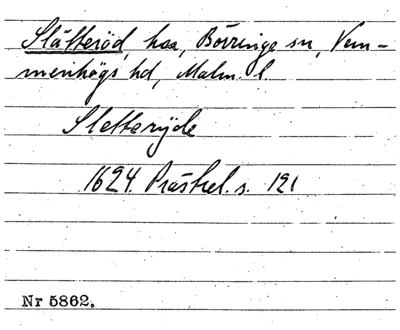 Slätteröd, hsa, Börringe sn, Vem-
menhögs hd, Malm. l.
Sletterijde
1624. Prästrel. s. 121
Nr 5862.